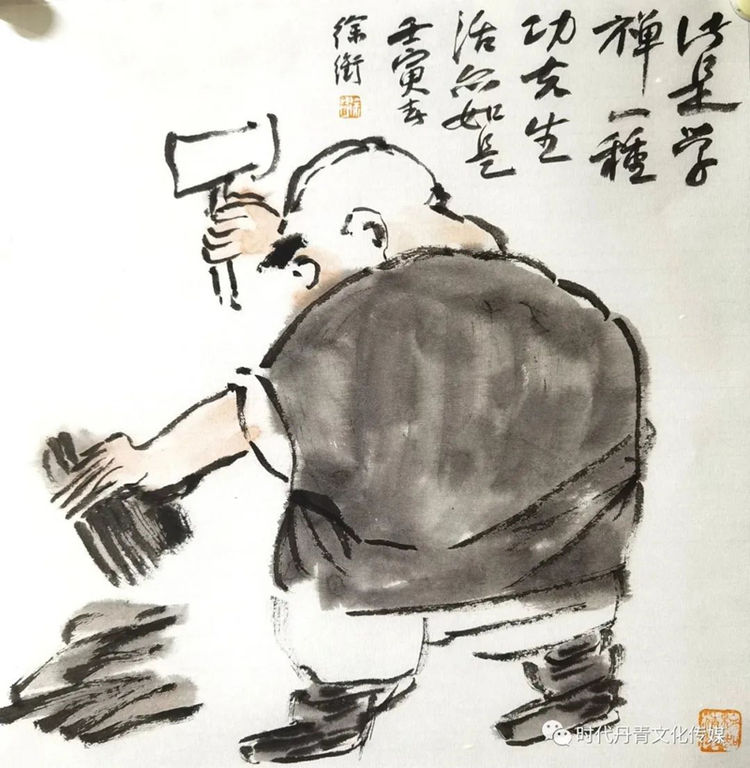 此是学
禅一種
功夫生
活亦如是
壬寅春
徐
时代丹青文化传媒